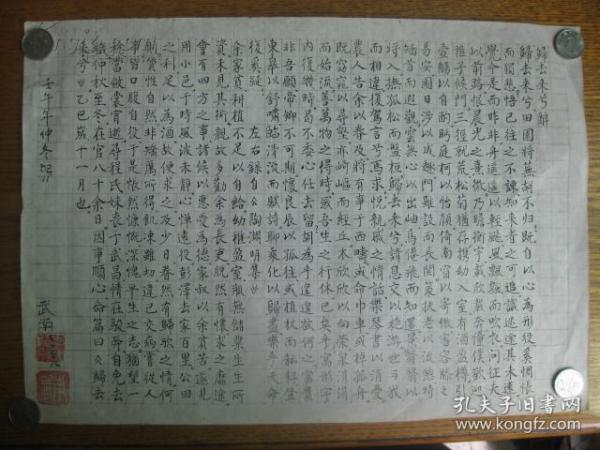 歸去来兮辞
歸去来兮田園將蕪胡不归既自以心為形役奚惆悵
而獨悲悟已往之不諫知来者之可追識迷途其未遠
覺今是而昨非舟遥遥以轻飏風飄飄而吹衣问征夫
以前路恨晨光之熹微乃瞻衡宇載欣載奔僮僕歡迎
稚子候門三徑就荒松菊猶存携幼入室有酒盈樽引
壶觴以自酌眄庭柯以怡颜倚南窗以寄傲審容膝之
易安園日涉以成趣門雖設而長関策扶老以流憩時
矯首而遐觀雲無心以出岫鳥倦飛而知還景翳翳以
将入撫孤松而盤桓歸去来兮請息交以絶游世与我
而相違復駕言兮焉求悦親戚之情話樂琴書以消憂
農人告余以春及將有事于西疇或命巾車或棹孤舟
既窈窕以尋壑亦崎嶇而經丘木欣欣以向荣泉涓涓
而始流善萬物之得時感吾生之行休已矣乎寓形宇
内復幾時曷不委心任去留胡為乎遑遑欲何之富貴
非吾願帝鄉不可期懷良辰以孤往或植杖而耘籽登
東皋以舒嘯臨清流而賦詩聊乘化以歸盡樂夫天命
復奚疑 左右録自《陶渊明集》
余家貧耕植不足以自給幼稚盈室瓶無儲粟生生所
資未見其術親故多勸余為長吏脱然有懷求之靡途
會有四方之事諸侯以惠愛為德家叔以余貧苦遂見
用小邑于時風波未静心惮遠役彭澤去家百里公田
之利足以為酒故便求之及少日眷然有歸歟之情何
則質性自然非矯厲所得飢凍雖切違己交病嘗從人
事皆口腹自役于是悵然慷慨深愧平生之志猶望一
稔當斂裳宵逝尋程氏妹丧于武昌情在駿奔自免去
職仲秋至冬在官八十余日因事順心命篇曰《歸去
来兮》乙巳歲十一月也
壬午年仲冬
武
孔夫子旧书网
www.kongfz.com